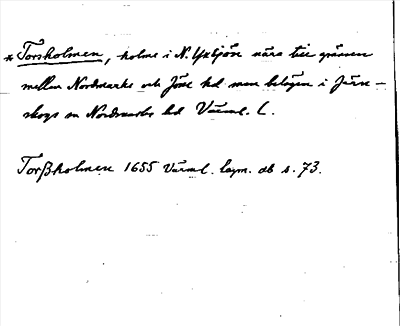 * Torsholmen, holme i N. Yxesjön nära till gränsen
mellan Nordmarks och Jöse hd men belägen i Järn-
skogs sn Nordmarks hd Värml. l.
Torßholmen 1655 Värml. lagm. db s. 73.